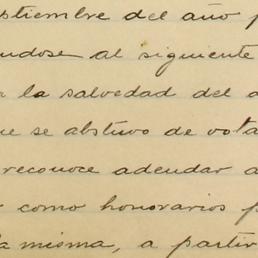 ptiembre del año p
ndose al siguiente
la salvedad del a
ue se abstuvo de vota
reconoce adeudar a
como honorarios p
la misma, a partir